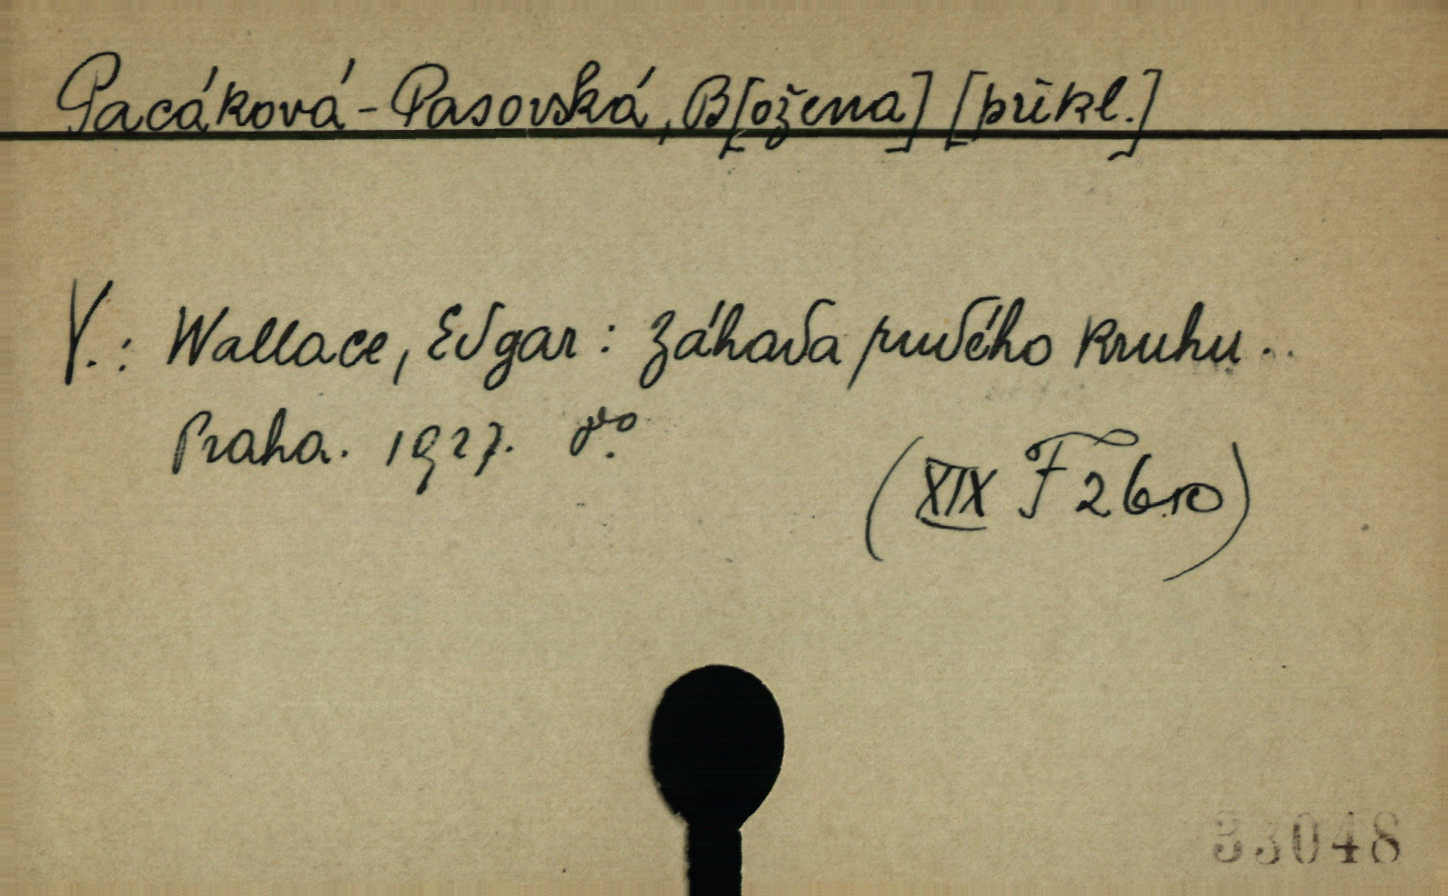 Pacáková-Pasovská, B[ožena] [překl.]
V.: Wallace, Edgar: Záhada rudého kruhu..
Praha. 1927. 8°.
(XIX F 26.10)
33048